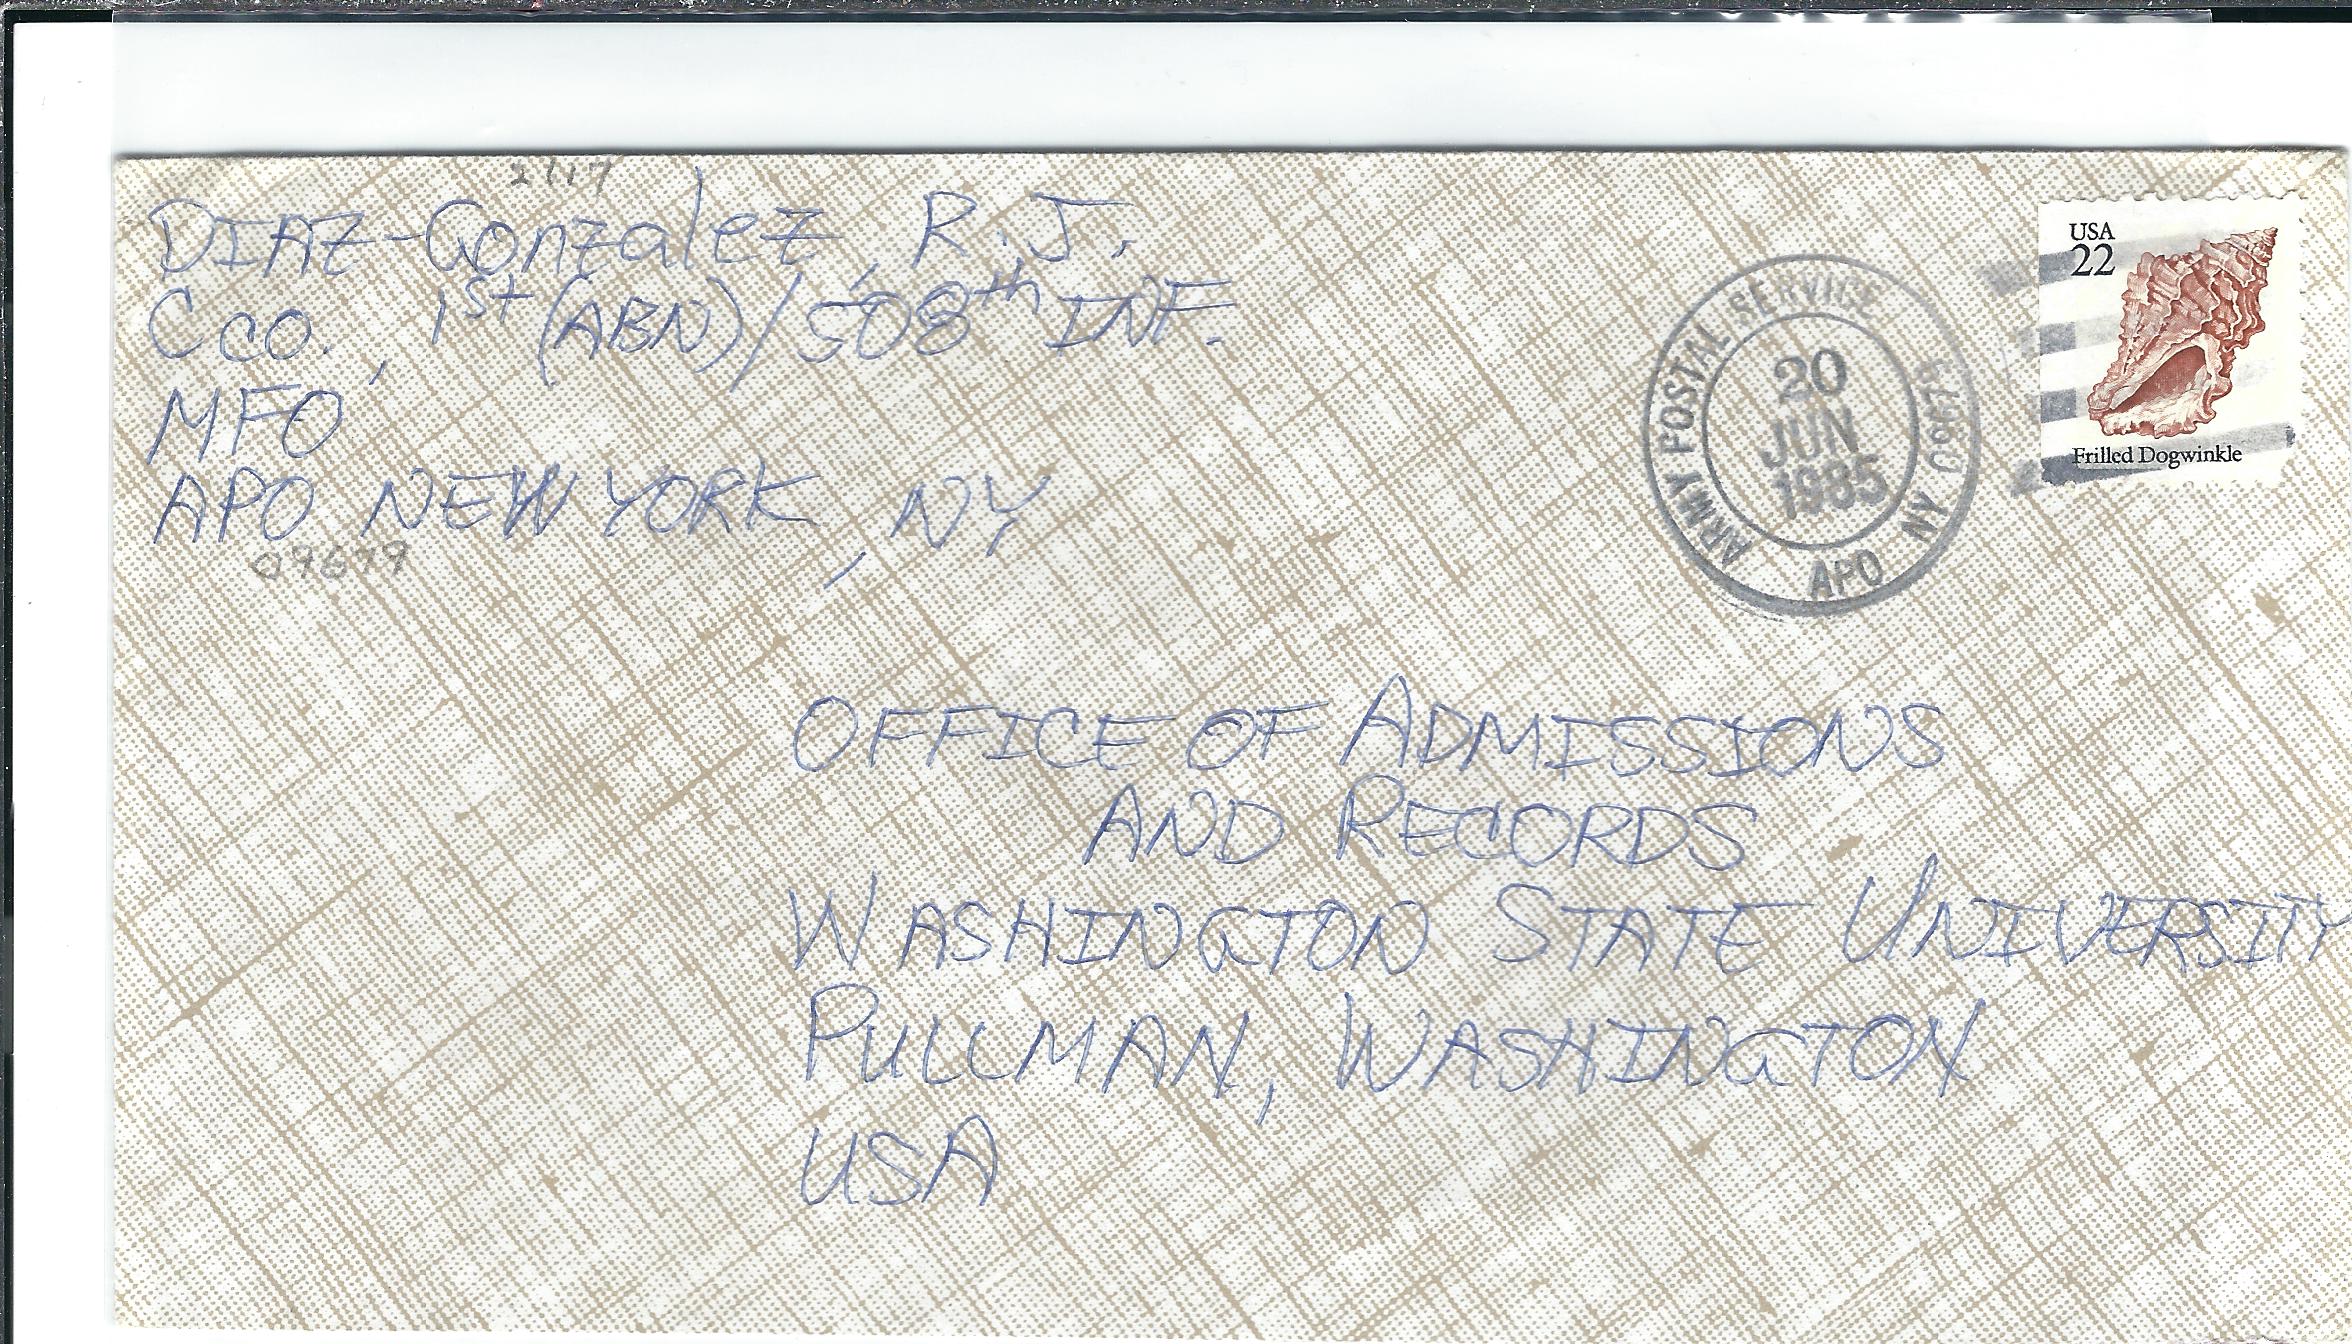 2117
DIAZ-Gonzalez, R.J.
C CO., 1st (ABN)/508th INF.
MFO
APO NEW YORK, NY
09679
ARMY POSTAL SERVICE
20
JUN
1985
APO NY 09679
USA
22
Frilled Dogwinkle
OFFICE OF ADMISSIONS
AND RECORDS
WASHINGTON STATE UNIVERSITY
PULLMAN, WASHINGTON
USA